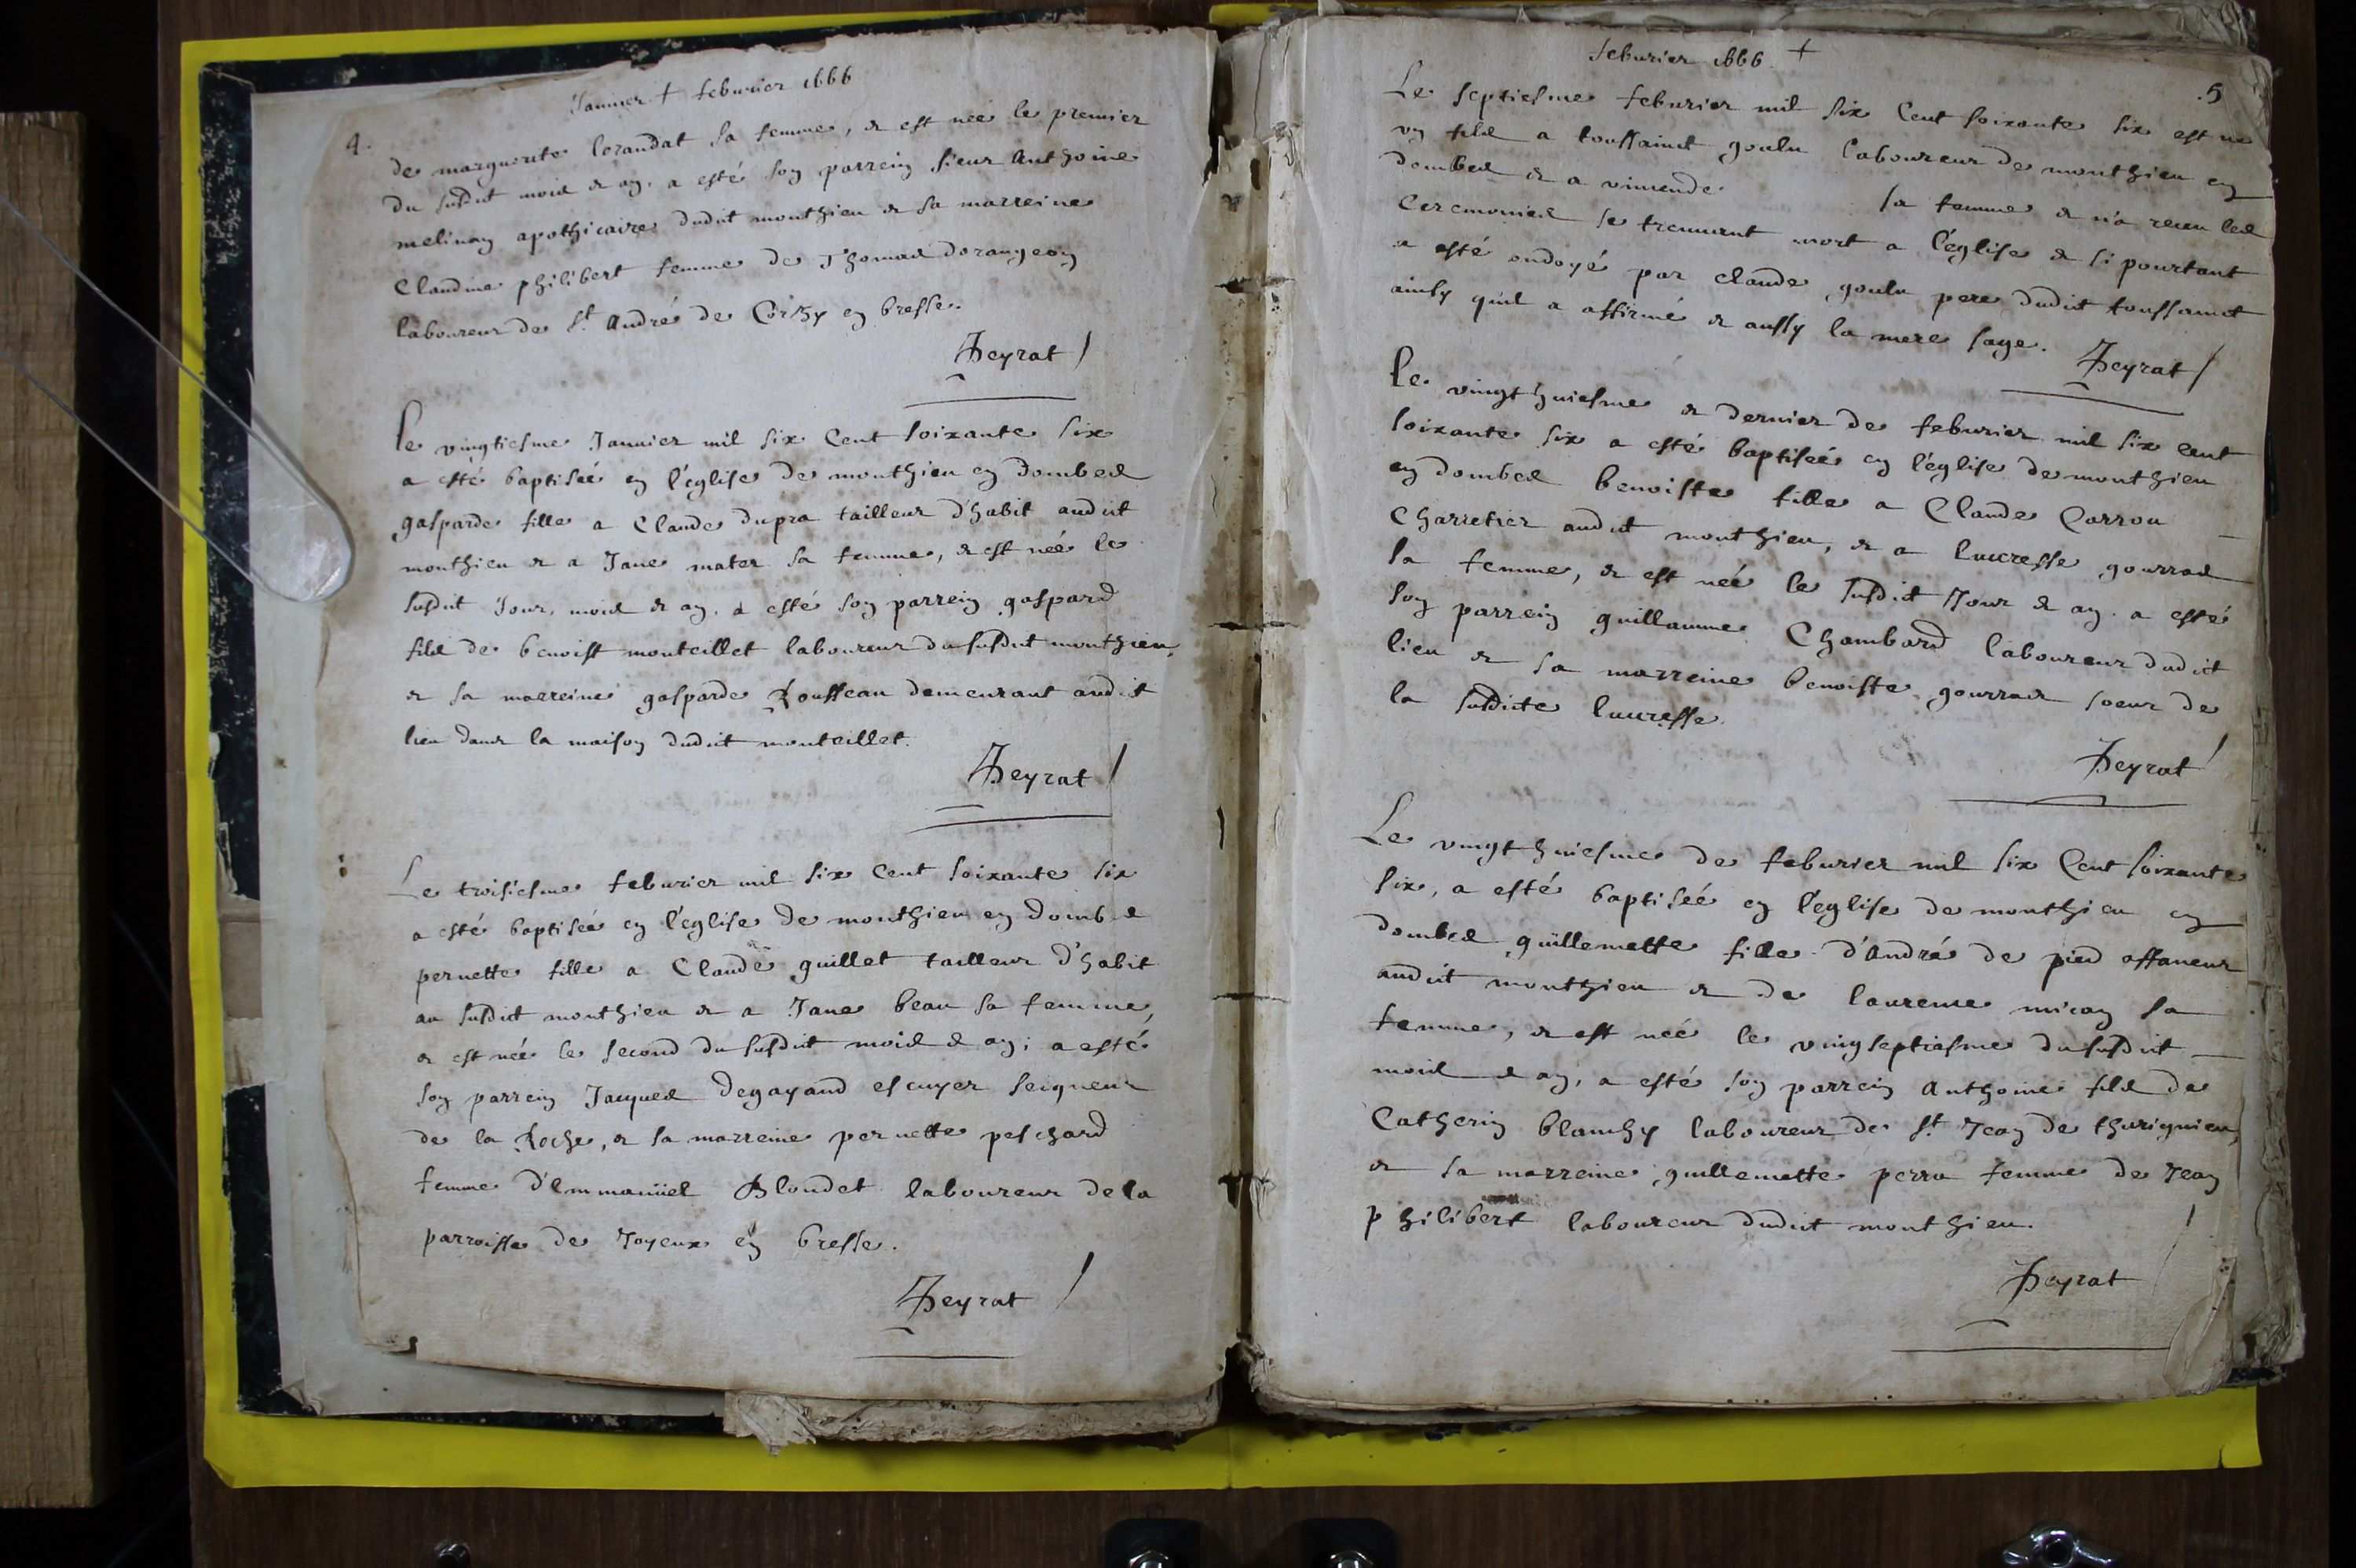 Januier + feburier 1666
4.
de marguerite lorandat sa femme, & est neé le premier
du susdit mois & an. a esté son parrein sieur Anthoine
melinon apothicaire dudit monthieu & sa marreine
Claudine philibert femme de Thomas dorangeon
laboureur de St. André de Corzy en bresse.
Peyrat
Le vingtiesme Januier mil six Cent soixante six
a esté baptiseé en l'église de monthieu en dombes
gasparde fille a Claude dupra tailleur d'habit audit
monthieu & a Jane mater sa femme, & est neé le
susdit Jour, mois & an. a esté son parrein gaspard
fils de benoist monteillet laboureur du susdit monthieu,
& sa marreine gasparde Rousseau demeurant audit
lieu dans la maison dudit monteillet.
Peyrat
Le troisiesme feburier mil six Cent soixante six
a esté baptiseé en l'église de monthieu en dombes
pernette fille a Claude guillet tailleur d'habit
au susdit monthieu & a Jane beau sa femme,
& est neé le second du susdit mois & an; a esté
son parrein Jacques degayand escuyer seigneur
de la Roche, & sa marreine pernette peschard
femme d'Emmanüel Blondet laboureur de la
parroisse de Joyeux en bresse.
Peyrat
feburier 1666. +
.5
Le septiesme feburier mil six Cent soixante six est né
vn fils a toussainct goulu laboureur de monthieu en
dombes & a vimende sa femme & n'a receu les
Ceremonies se treuuant mort a l'église & si pourtant
a esté ondoyé par claude goulu pere dudit toussainct
ainsy qu'il a affirmé & aussy la mere sage.
Peyrat
Le vingt huiesme & dernier de feburier mil six cent
soixante six a esté baptiseé en l'église de monthieu
en dombes benoiste fille a Claude Carrou
Charretier audit monthieu, & a lucresse gourras
sa femme, & est neé le susdit Jour & an. a esté
son parrein guillaume Chambard laboureur dudict
lieu & sa marreine benoiste gourras soeur de
la susdicte lucresse.
Peyrat
Le vingt huiesme de feburier mil six Cent soixante
six, a esté baptiseé en l'église de monthieu en
dombes guillemette fille d'André de pied affaneur
audit monthieu & de laurence micon sa
femme, & est neé le vingseptiesme du susdit
mois & an, a esté son parrein Anthoine fils de
Catherin blanchy laboureur de St. Jean de thurignieu,
& sa marreine guillemette perra femme de Jean
philibert laboureur dudit monthieu.
Peyrat